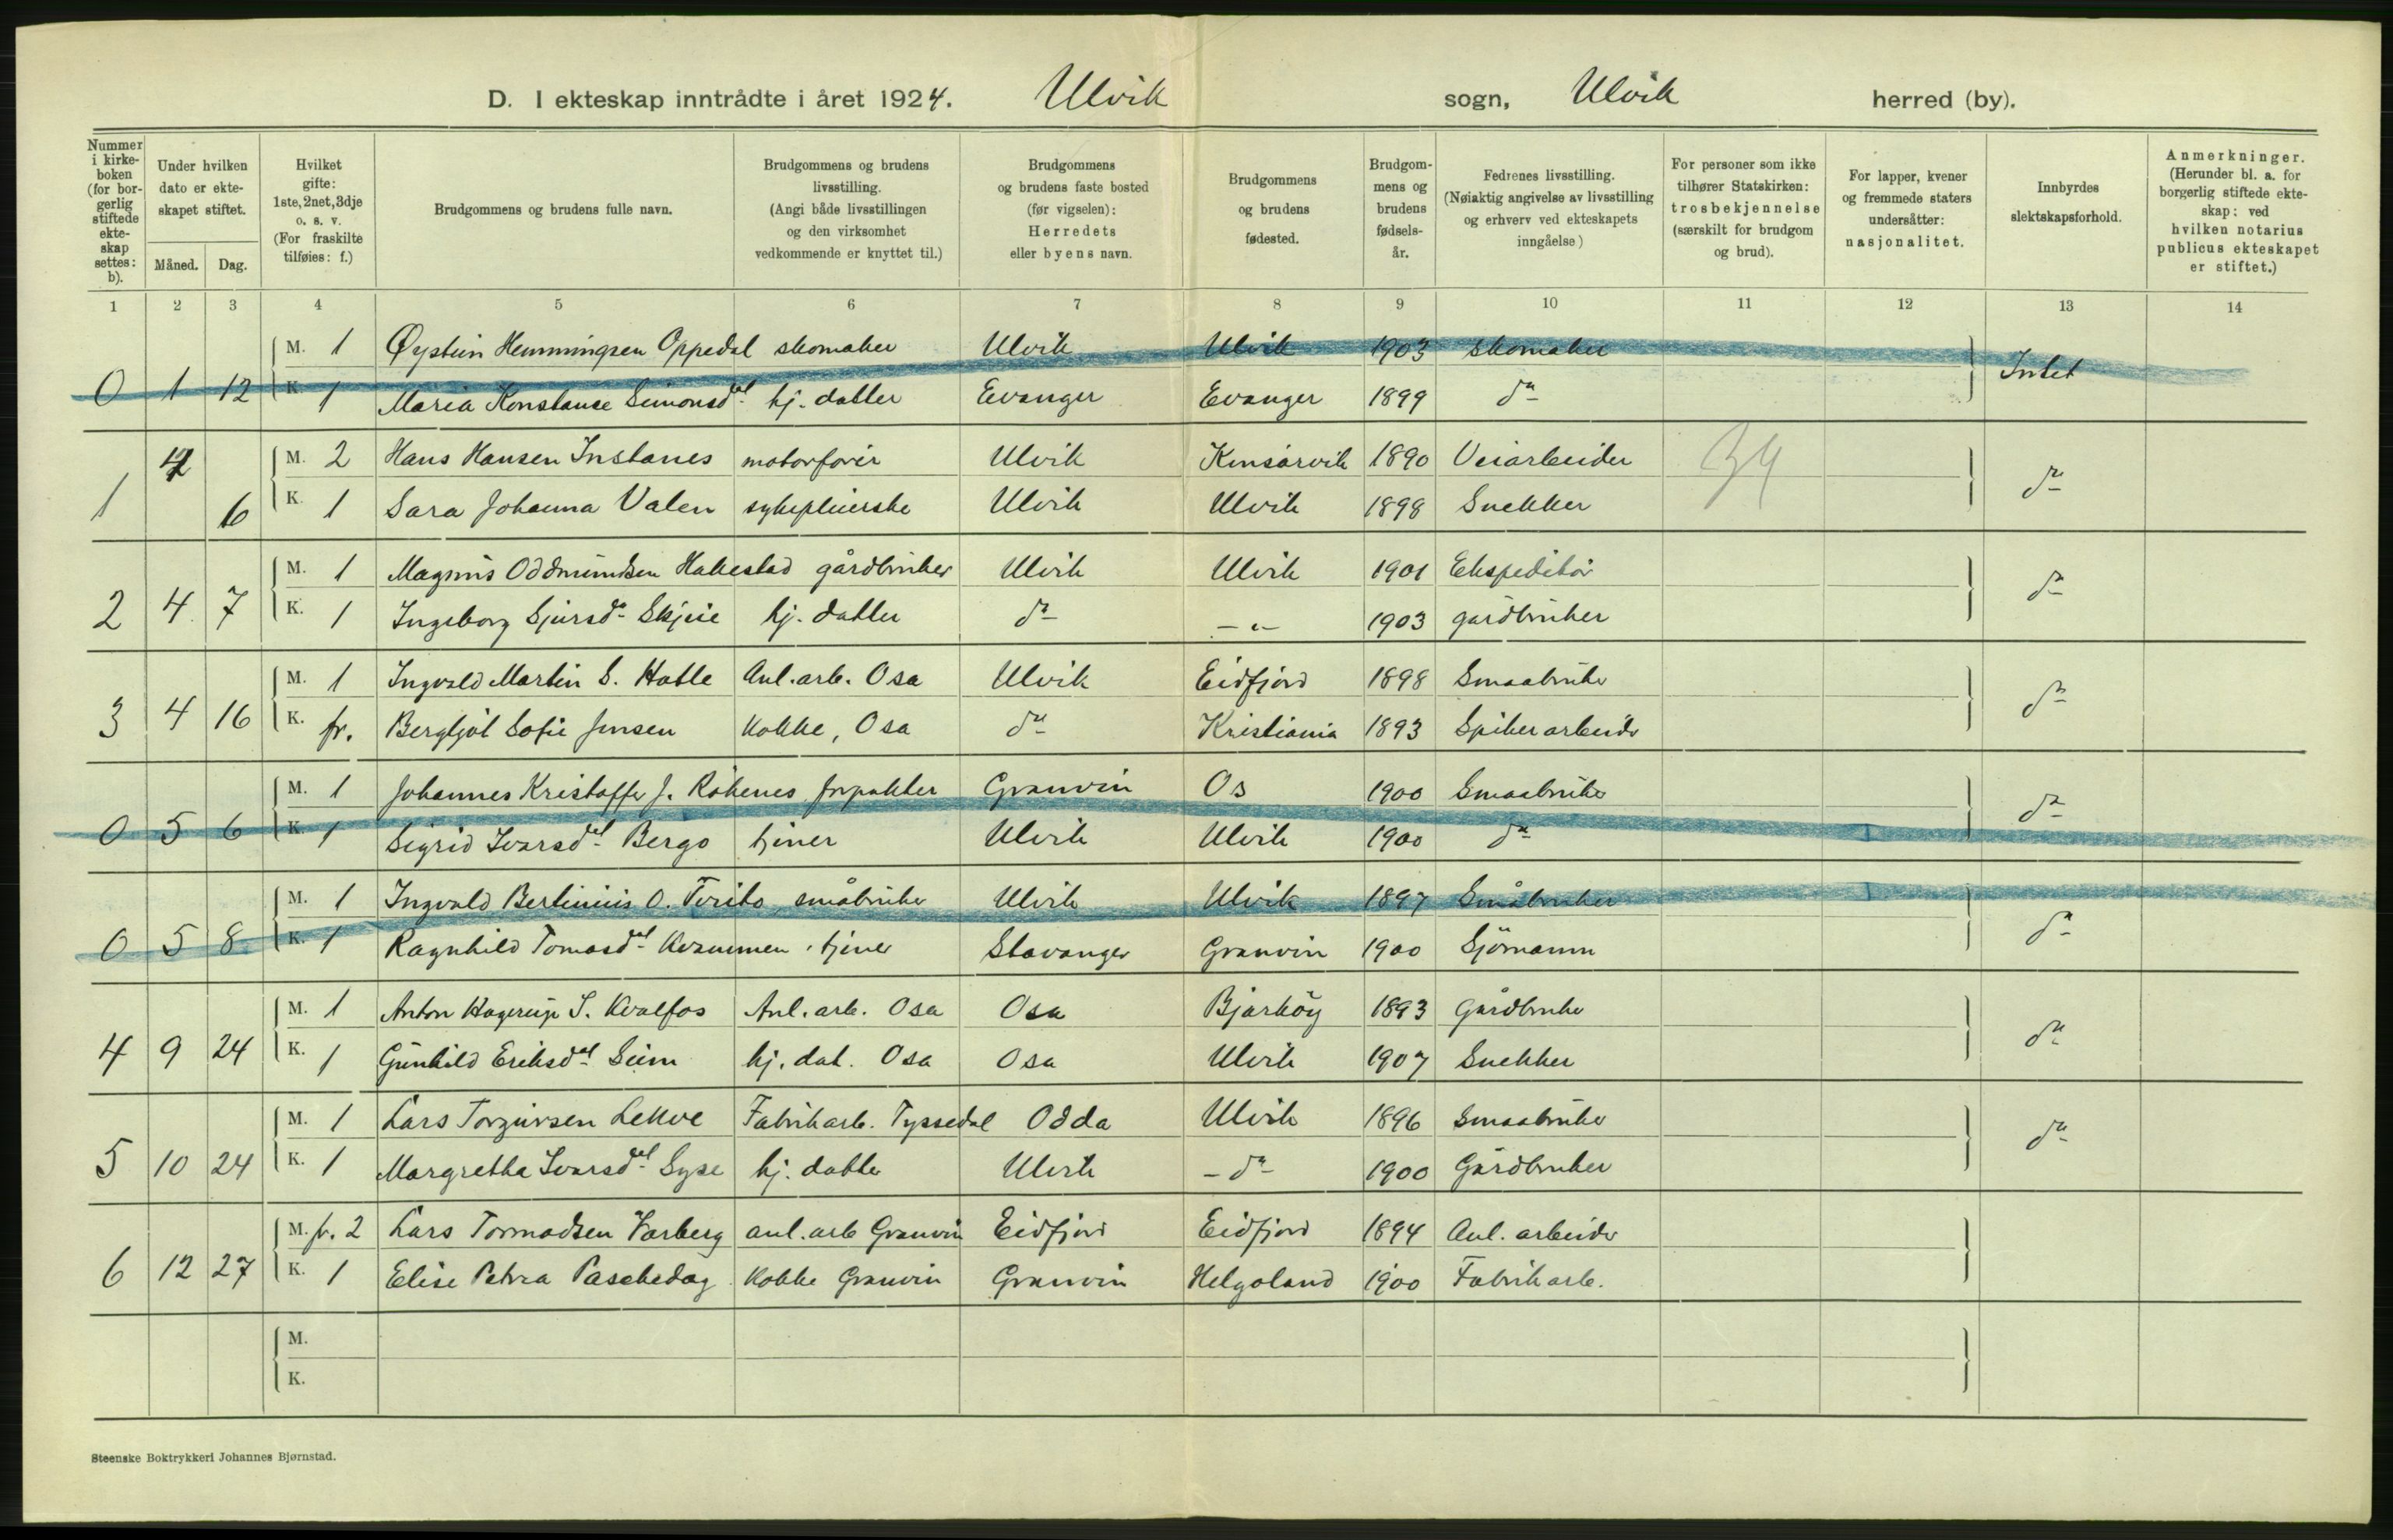 D. I ekteskap inntrådte i året 1924. Ulvik sogn, Ulvik herred (by).
Nummer i kirkeboken (for borgerlig stiftede ekteskap settes: b).
Under hvilken dato er ekteskapet stiftet.
Måned. Dag.
Hvilket gifte: 1ste, 2net, 3dje o. s. v. (For fraskilte tilføies: f.)
Brudgommens og brudens fulle navn.
Brudgommens og brudens livsstilling. (Angi både livsstillingen og den virksomhet vedkommende er knyttet til.)
Brudgommens og brudens faste bosted (før vigselen): Herredets eller byens navn.
Brudgommens og brudens fødested.
Brudgommens og brudens fødselsår.
Fedrenes livsstilling. (Nøiaktig angivelse av livsstilling og erhverv ved ekteskapets inngåelse)
For personer som ikke tilhører Statskirken: trosbekjennelse (særskilt for brudgom og brud).
For lapper, kvener og fremmede staters undersåtter: nasjonalitet.
Innbyrdes slektskapsforhold.
Anmerkninger. (Herunder bl. a. for borgerlig stiftede ekteskap: ved hvilken notarius publicus ekteskapet er stiftet.)
1 2 3 4 5 6 7 8 9 10 11 12 13 14
M. 1 Øystein Hemmingsen Oppedal skomaker Ulvik Ulvik 1903 skomaker
0 1 12 K. 1 Maria Konstanse Simonsdtl hj. datter Evanger Evanger 1899 do Intet
M. 2 Hans Hansen Instanes motorfører Ulvik Kinsarvik 1890 Veiarbeider 34
1 4 6 K. 1 Sara Johanna Valen sykepleierske Ulvik Ulvik 1898 Snekker do
M. 1 Magnus Oddmundsen Hakestad gårdbruker Ulvik Ulvik 1901 Ekspeditør
2 4 7 K. 1 Ingeborg Sjursd. Skjeie hj. datter do - " - 1903 gårdbruker do
M. 1 Ingvald Martin S. Hatle Anl. arb. Osa Ulvik Eidfjord 1898 Smaabruker
3 4 16 K. fr. Bergljot Sofie Jensen Kokke, Osa do Kristiania 1893 Spikerarbeider do
M. 1 Johannes Kristoffer J. Røkenes forpakter Granvin Os 1900 Smaabruker
0 5 6 K. 1 Sigrid Ivarsdtl Bergo tjener Ulvik Ulvik 1900 do do
M. 1 Ingvald Bertinius O. småbruker Ulvik Ulvik 1897 Småbruker
0 5 8 K. 1 Ragnhild Tomasdtl Kvammen tjener Stavanger Granvin 1900 Sjömann do
M. 1 Anton Hagerup S. Kvalfos Anl. arb. Osa Osa Bjarköy 1893 Gårdbruker
4 9 24 K. 1 Gunhild Eriksdtl Seim hj. dat. Osa Osa Ulvik 1907 Snekker do
M. 1 Lars Torgiersen Lekve Fabrikarb. Tyssedal Odda Ulvik 1896 Smaabruker
5 10 24 K. 1 Margretha Ivarsdtl Syse hj. datter Ulvik - do - 1900 Gårdbruker do
M. fr. 2 Lars Tormodsen Varberg anl. arb Granvin Eidfjord Eidfjord 1894 Anl. arbeider
6 12 27 K. 1 Elise Petra Paschedag Kokke Granvin Granvin Helgoland 1900 Fabrikarb.
M.
K.
Steenske Boktrykkeri Johannes Bjørnstad.